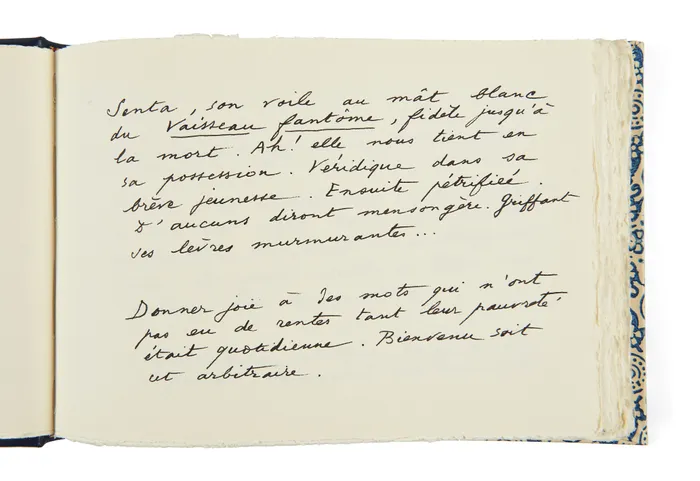 Senta, son voile au mât blanc
du Vaisseau fantôme, fidèle jusqu'à
la mort. Ah! elle nous tient en
sa possession. Véridique dans sa
brève jeunesse. Ensuite pétrifiée.
D'aucuns diront mensongère. Griffant
ses lèvres murmurantes...
Donner joie à des mots qui n'ont
pas eu de rentes tant leur pauvreté
était quotidienne. Bienvenu soit
cet arbitraire.